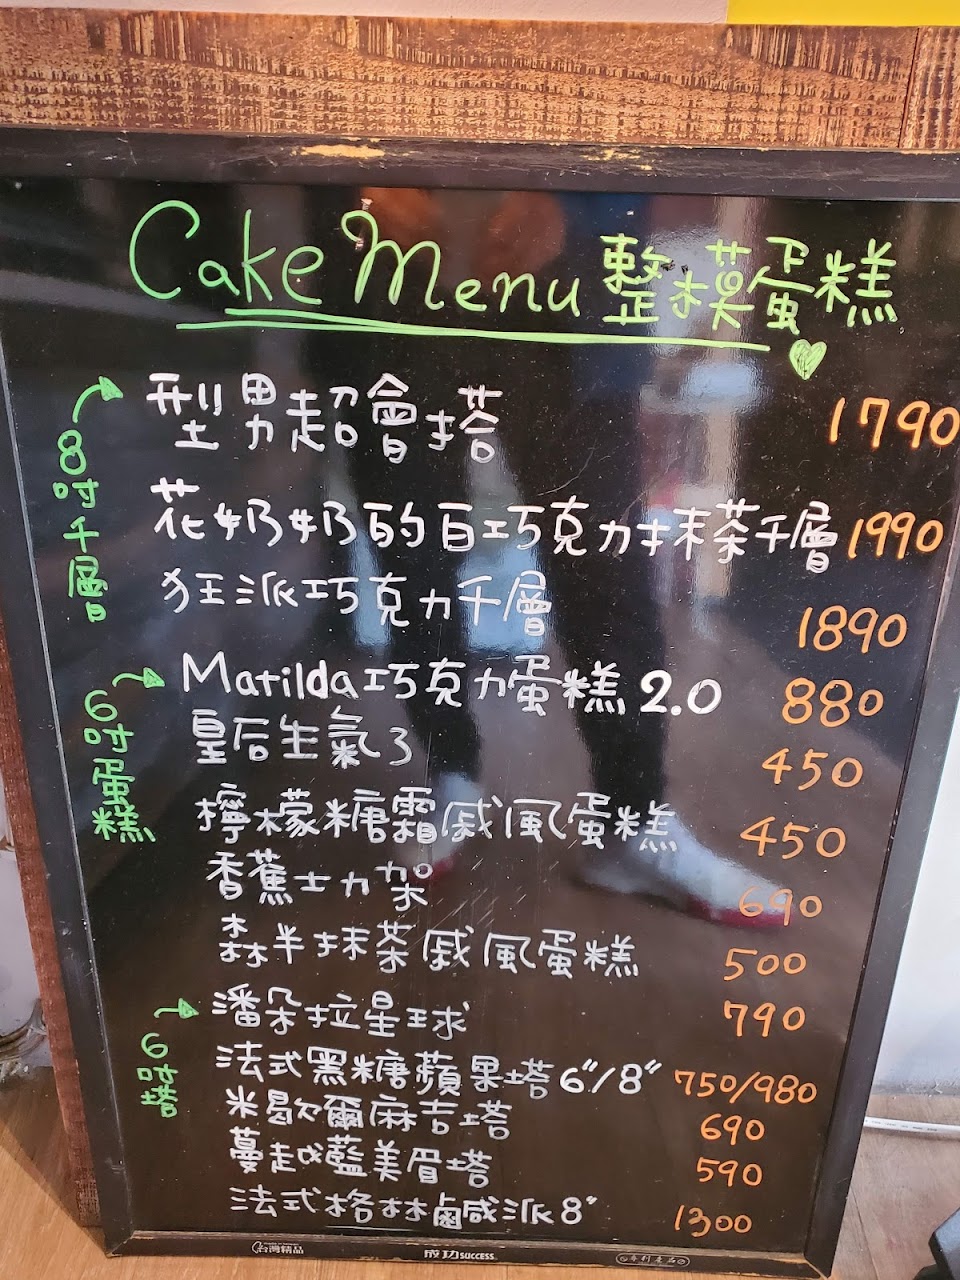 Cake Menu 整模蛋糕
8吋千層
型男超會塔 1790
花奶奶的白巧克力抹茶千層 1990
狂派巧克力千層 1890
6吋蛋糕
Matilda巧克力蛋糕 2.0 880
皇后生氣了 450
檸檬糖霜戚風蛋糕 450
香蕉士力架 690
森半抹茶戚風蛋糕 500
6吋塔
潘朵拉星球 790
法式黑糖蘋果塔 6"/8" 750/980
米歇爾麻吉塔 690
蔓越藍美眉塔 590
法式格林鹹派 8" 1300
台灣精品
成功 SUCCESS
專利產品